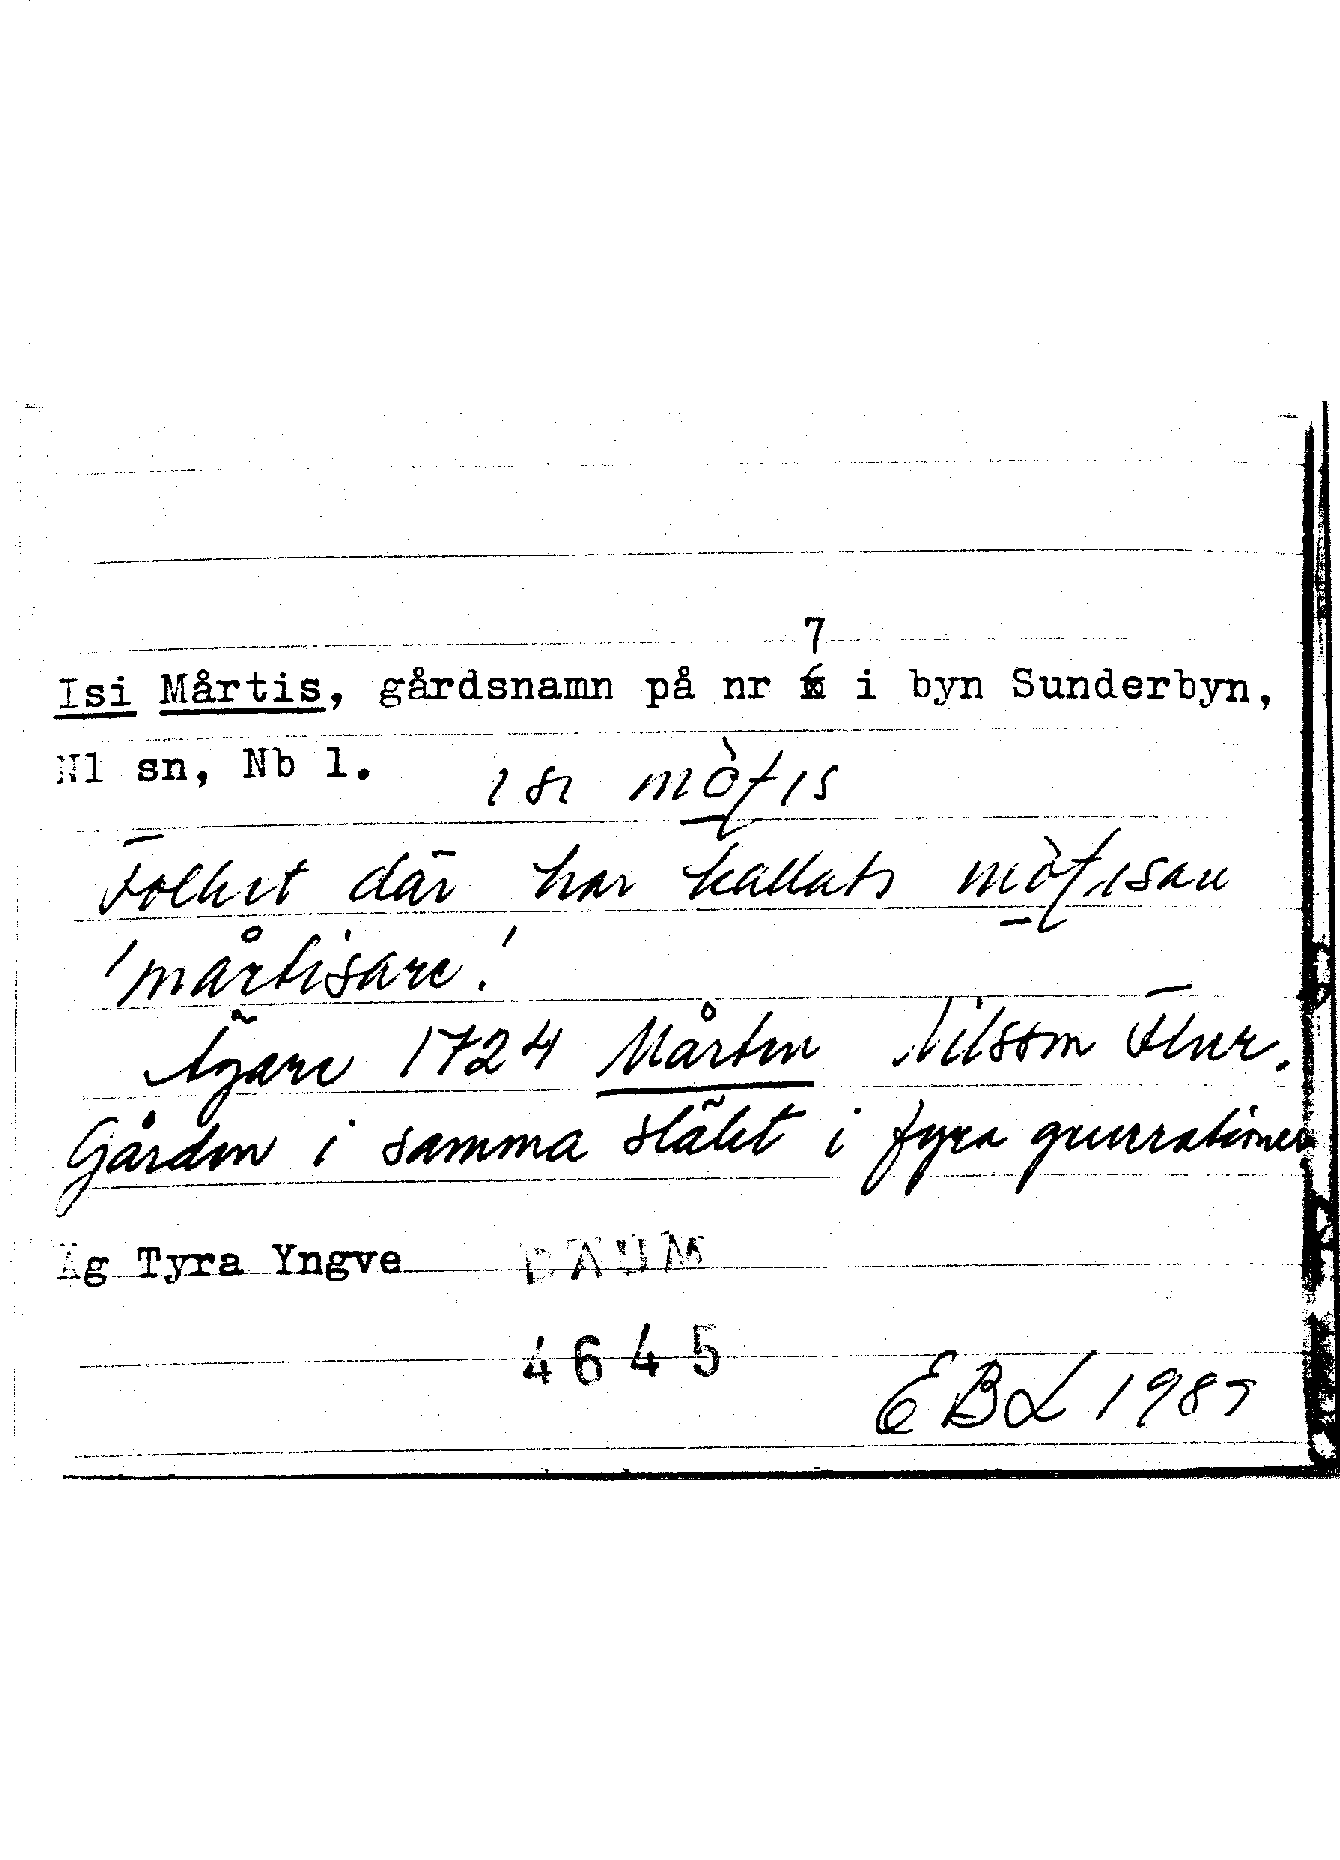 7
Isi Mårtis, gårdsnamn på nr 6 i byn Sunderbyn,
Nl sn, Nb l. isi mòţis
Folket där har kallats mòţisan
'mårtisare'.
Ägare 1724 Mårten Nilsson Flur.
Gården i samma släkt i fyra generationer
Äg Tyra Yngve DAUM
4645
EBL 1987